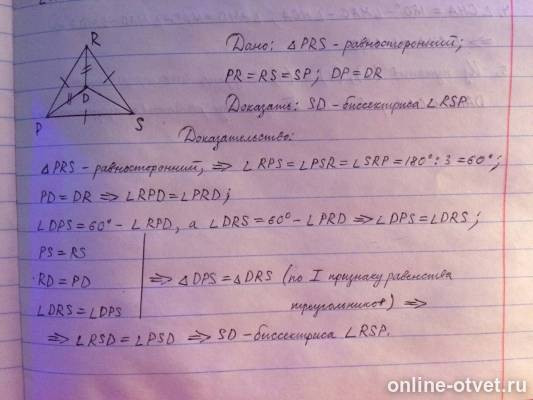 R
D
P
S
Дано: △PRS - равносторонний;
PR = RS = SP; DP = DR
Доказать: SD - биссектриса ∠RSP.
Доказательство:
△PRS - равносторонний, ⇒ ∠RPS = ∠PSR = ∠SRP = 180° : 3 = 60°;
PD = DR ⇒ ∠RPD = ∠PRD;
∠DPS = 60° - ∠RPD, а ∠DRS = 60° - ∠PRD ⇒ ∠DPS = ∠DRS;
PS = RS
RD = PD
∠DRS = ∠DPS
⇒ △DPS = △DRS (по I признаку равенства
треугольников) ⇒
⇒ ∠RSD = ∠PSD ⇒ SD - биссектриса ∠RSP.
online-otvet.ru